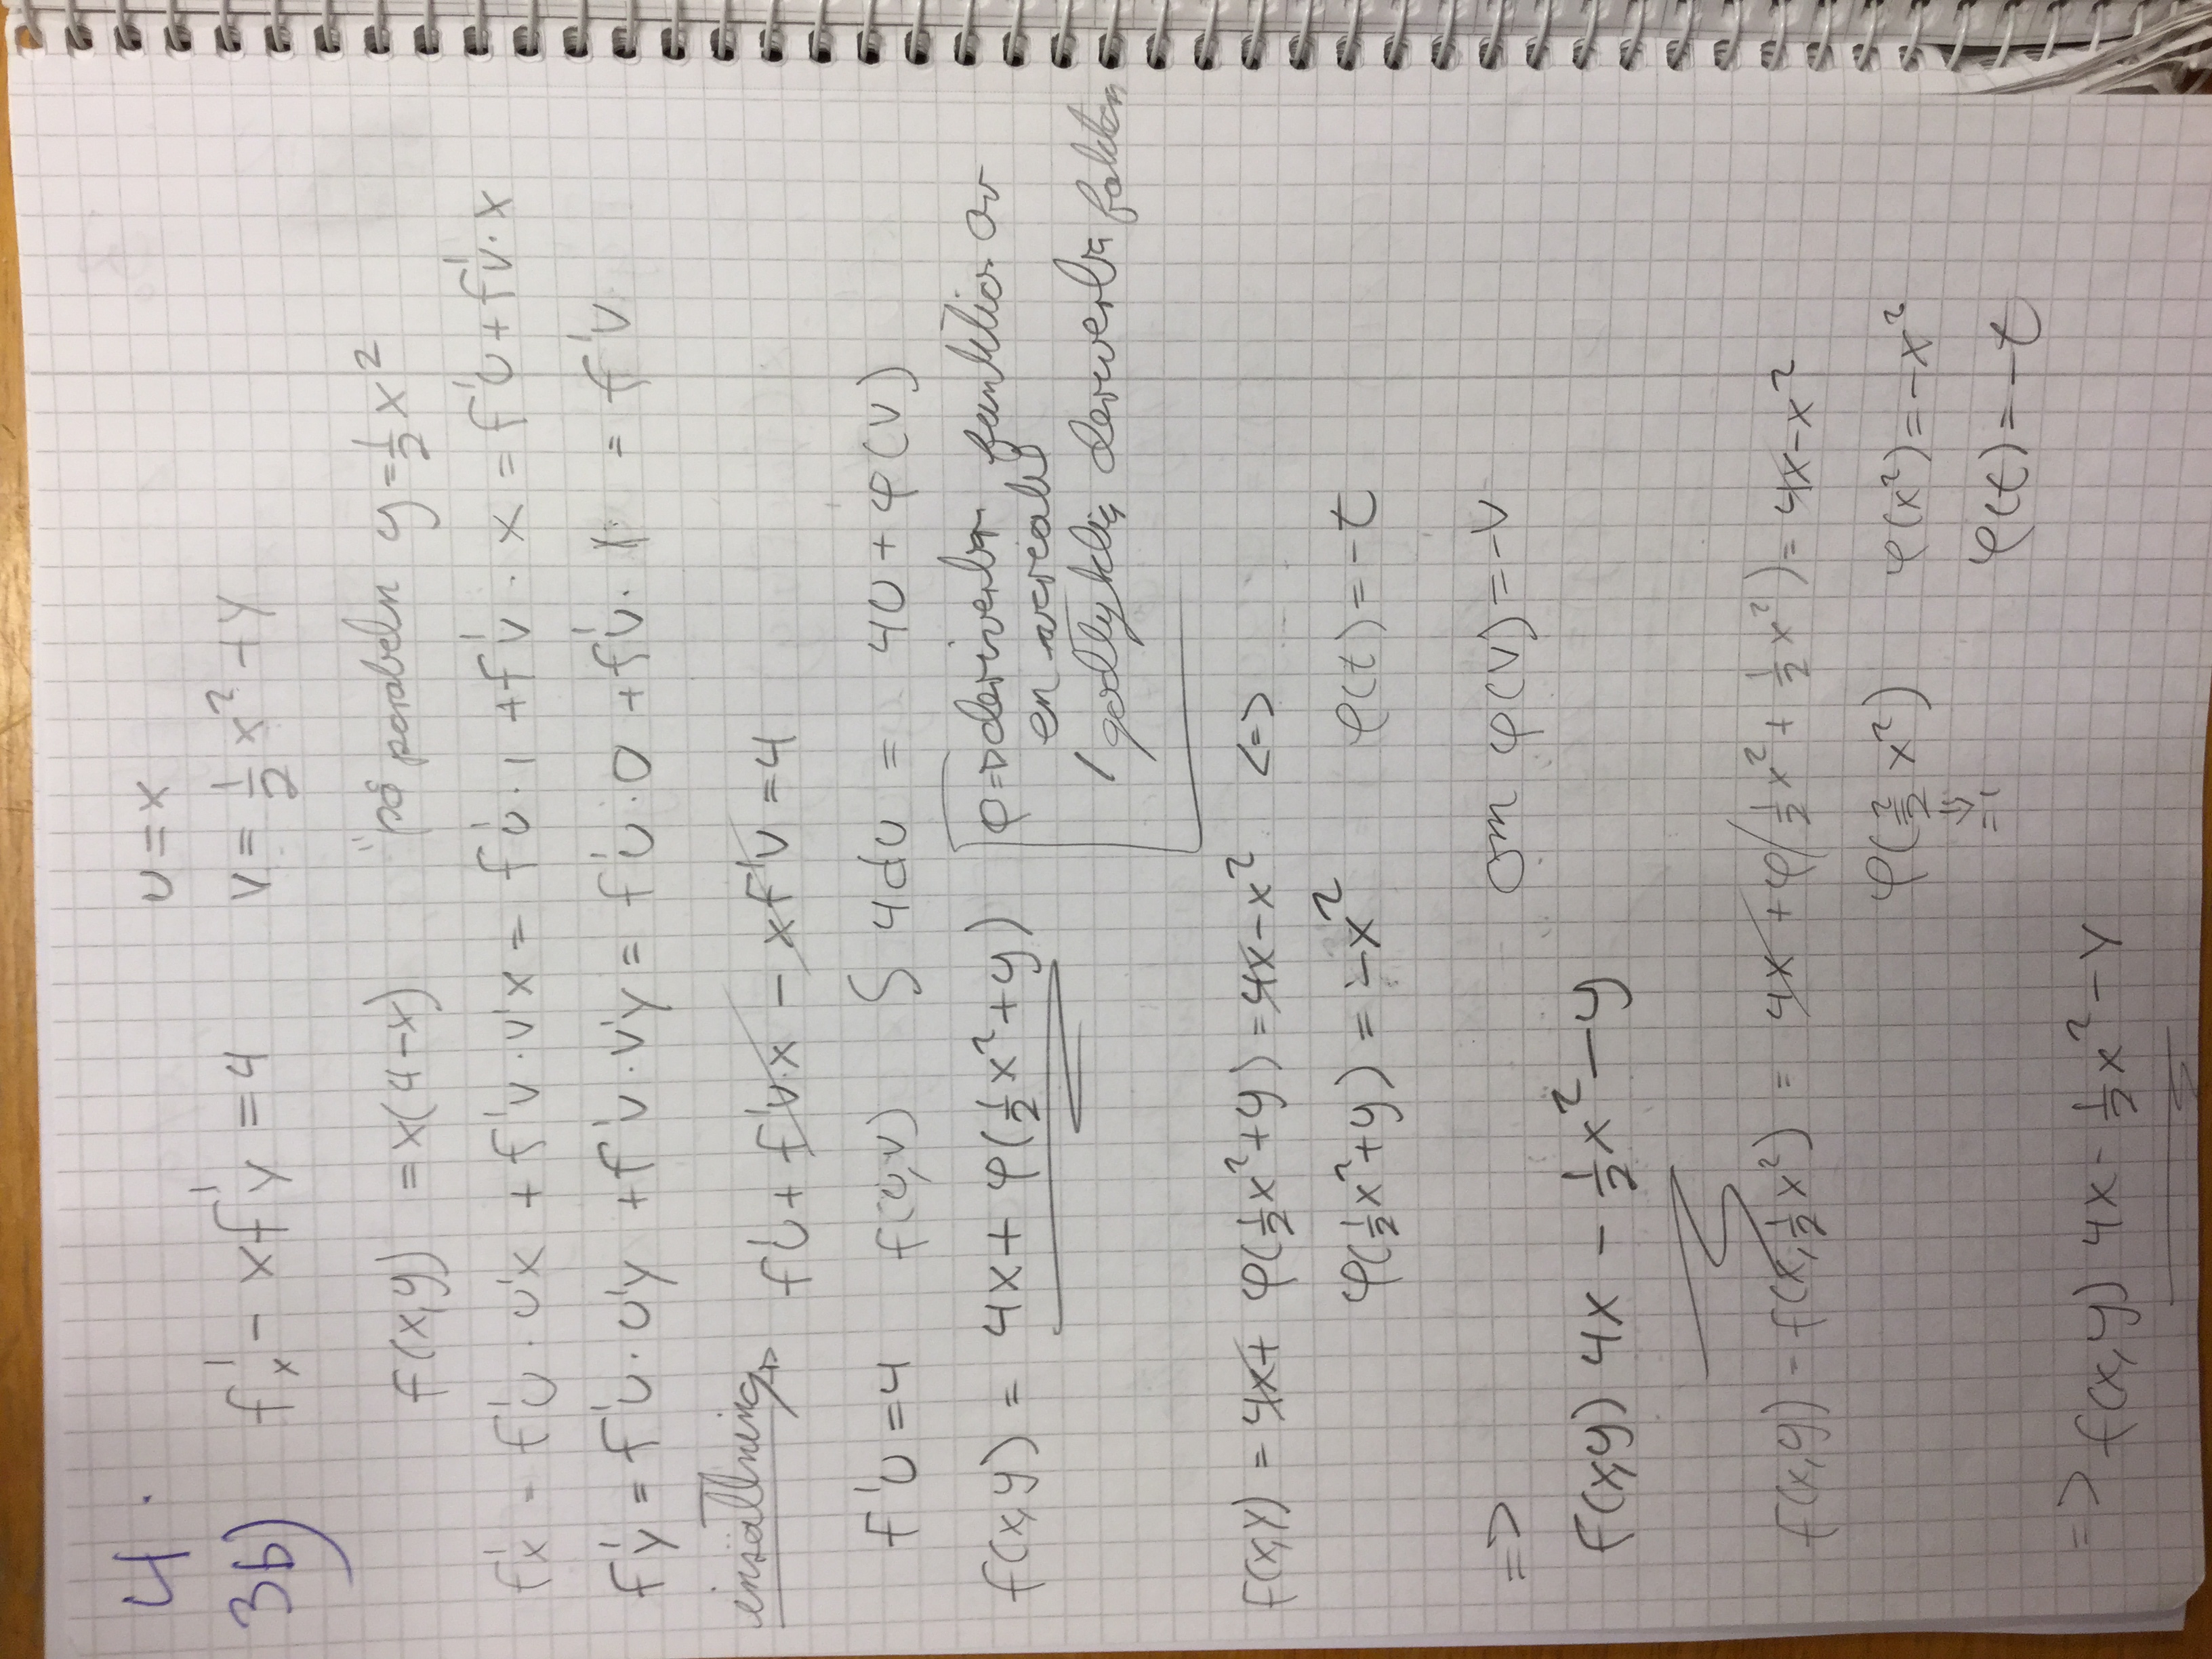 4.
u = x
3b) f'x - xf'y = 4 v = 1/2 x² + y
f(x,y) = x(4-x) "på parabeln y = 1/2 x²
f'x = f'u · u'x + f'v · v'x = f'u · 1 + f'v · x = f'u + f'v · x
f'y = f'u · u'y + f'v · v'y = f'u · 0 + f'v · 1 = f'v
insättning → f'u + f'v·x - xf'v = 4
f'u = 4 f(u,v) ∫ 4du = 4u + φ(v)
f(x,y) = 4x + φ(1/2 x² + y) φ => deriverbar funktion av
en variabel
/ godtycklig deriverbar
f(x,y) = 4x + φ(1/2 x² + y) = 4x - x² <=>
φ(1/2 x² + y) = -x² φ(t) = -t
=> om φ(v) = -v
f(x,y) 4x - 1/2 x² - y
f(x,y) = f(x, 1/2 x²) = 4x + φ(1/2 x² + 1/2 x²) = 4x - x²
φ(2/2 x²) φ(x²) = -x²
= 1 φ(t) = -t
=> f(x,y) 4x - 1/2 x² - y